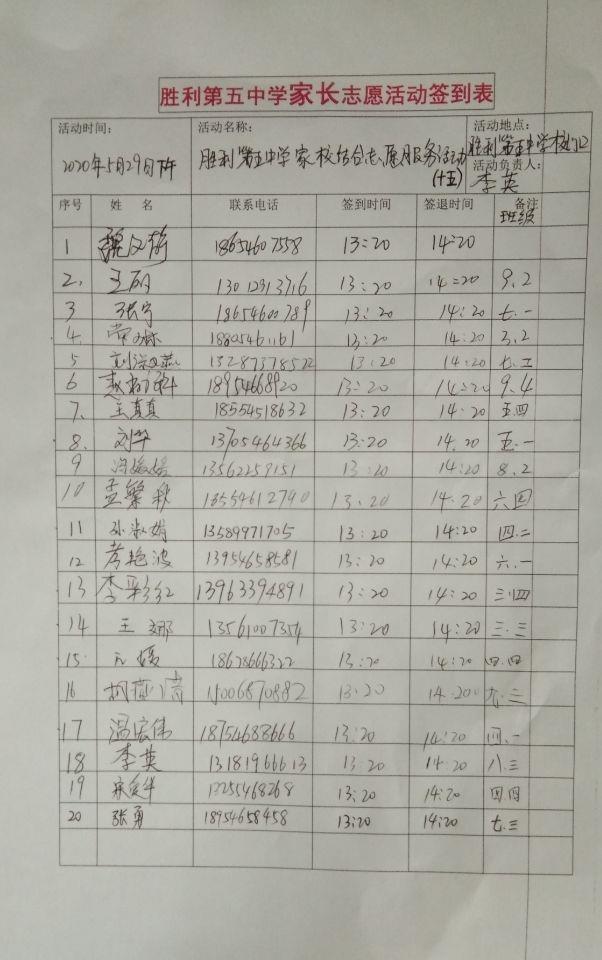 胜利第五中学家长志愿活动签到表
活动时间: 活动名称: 活动地点:
2020年5月29日下午 胜利第五中学家校结合志愿服务活动(十五) 胜利第五中学校门口
活动负责人:
李英
序号 姓 名 联系电话 签到时间 签退时间 备注
班级
1 魏文静 18654607558 13:20 14:20
2、 王丽 13012313716 13:20 14:20 9.2
3 张宁 18654600789 13:20 14:20 七.一
4. 18805461161 13:20 14:20 3.2
5 13287378522 13:20 14:20 七.二
6 18954668920 13:20 14:20 9.4
7、 王真真 18554518632 13:20 14:20 五四
8、 刘华 13705464366 13:20 14.20 五.一
9 13562259151 13:20 14:20 8.2
10 孟繁秋 13554612790 13.20 14.20 六四
11 孙淑娟 13589971705 13:20 14:20 四.二
12 李艳波 13954658581 13:20 14:20 六.一
13 李彩红 13963394891 13:20 14:20 三.四
14 王娜 13561007354 13:20 14:20 三.三
15· 亓媛 18628666322 13:20 14:20 四.四
16 15006870882 13:20 14:20 九.三
17 温宏伟 18754688666 13:20 14:20 四.一
18 李英 13181966613 13:20 14:20 八.三
19 13255468268 13:20 14:20 四.四
20 张勇 18954658458 13:20 14:20 七.三